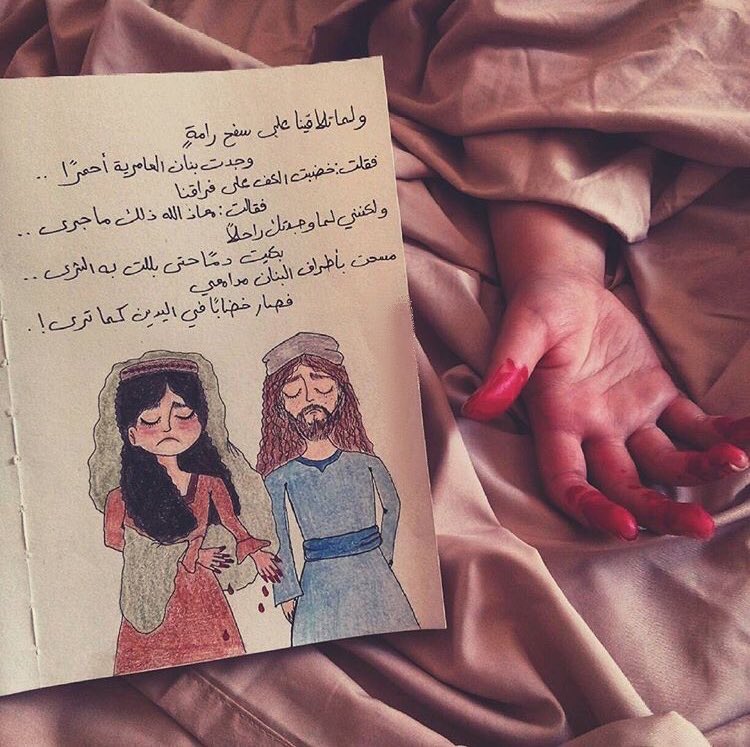 ولما تلاقينا على سفح رامةٍ
وجدت بنان العامرية أحمرًا ..
فقلت: خضبت الكف على فراقنا
فقالت: معاذ الله ذلك ما جرى ..
ولكنني لما وجدتك راحلًا
بكيت دمًا حتى بللت به الثرى ..
مسحت بأطراف البنان مدامعي
فصار خضابًا في اليدين كما ترى !.